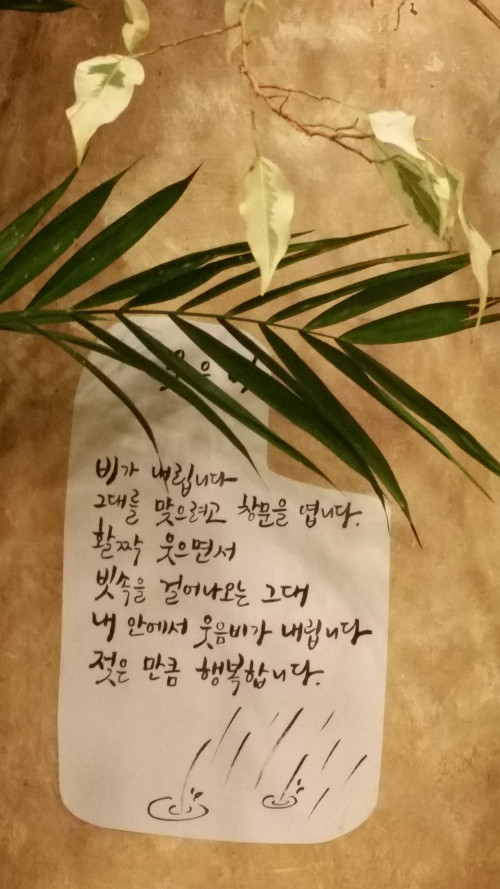 비가 내립니다
그대를 맞으려고 창문을 엽니다.
활짝 웃으면서
빗속을 걸어나오는 그대
내 안에서 웃음비가 내립니다
젖은 만큼 행복합니다.